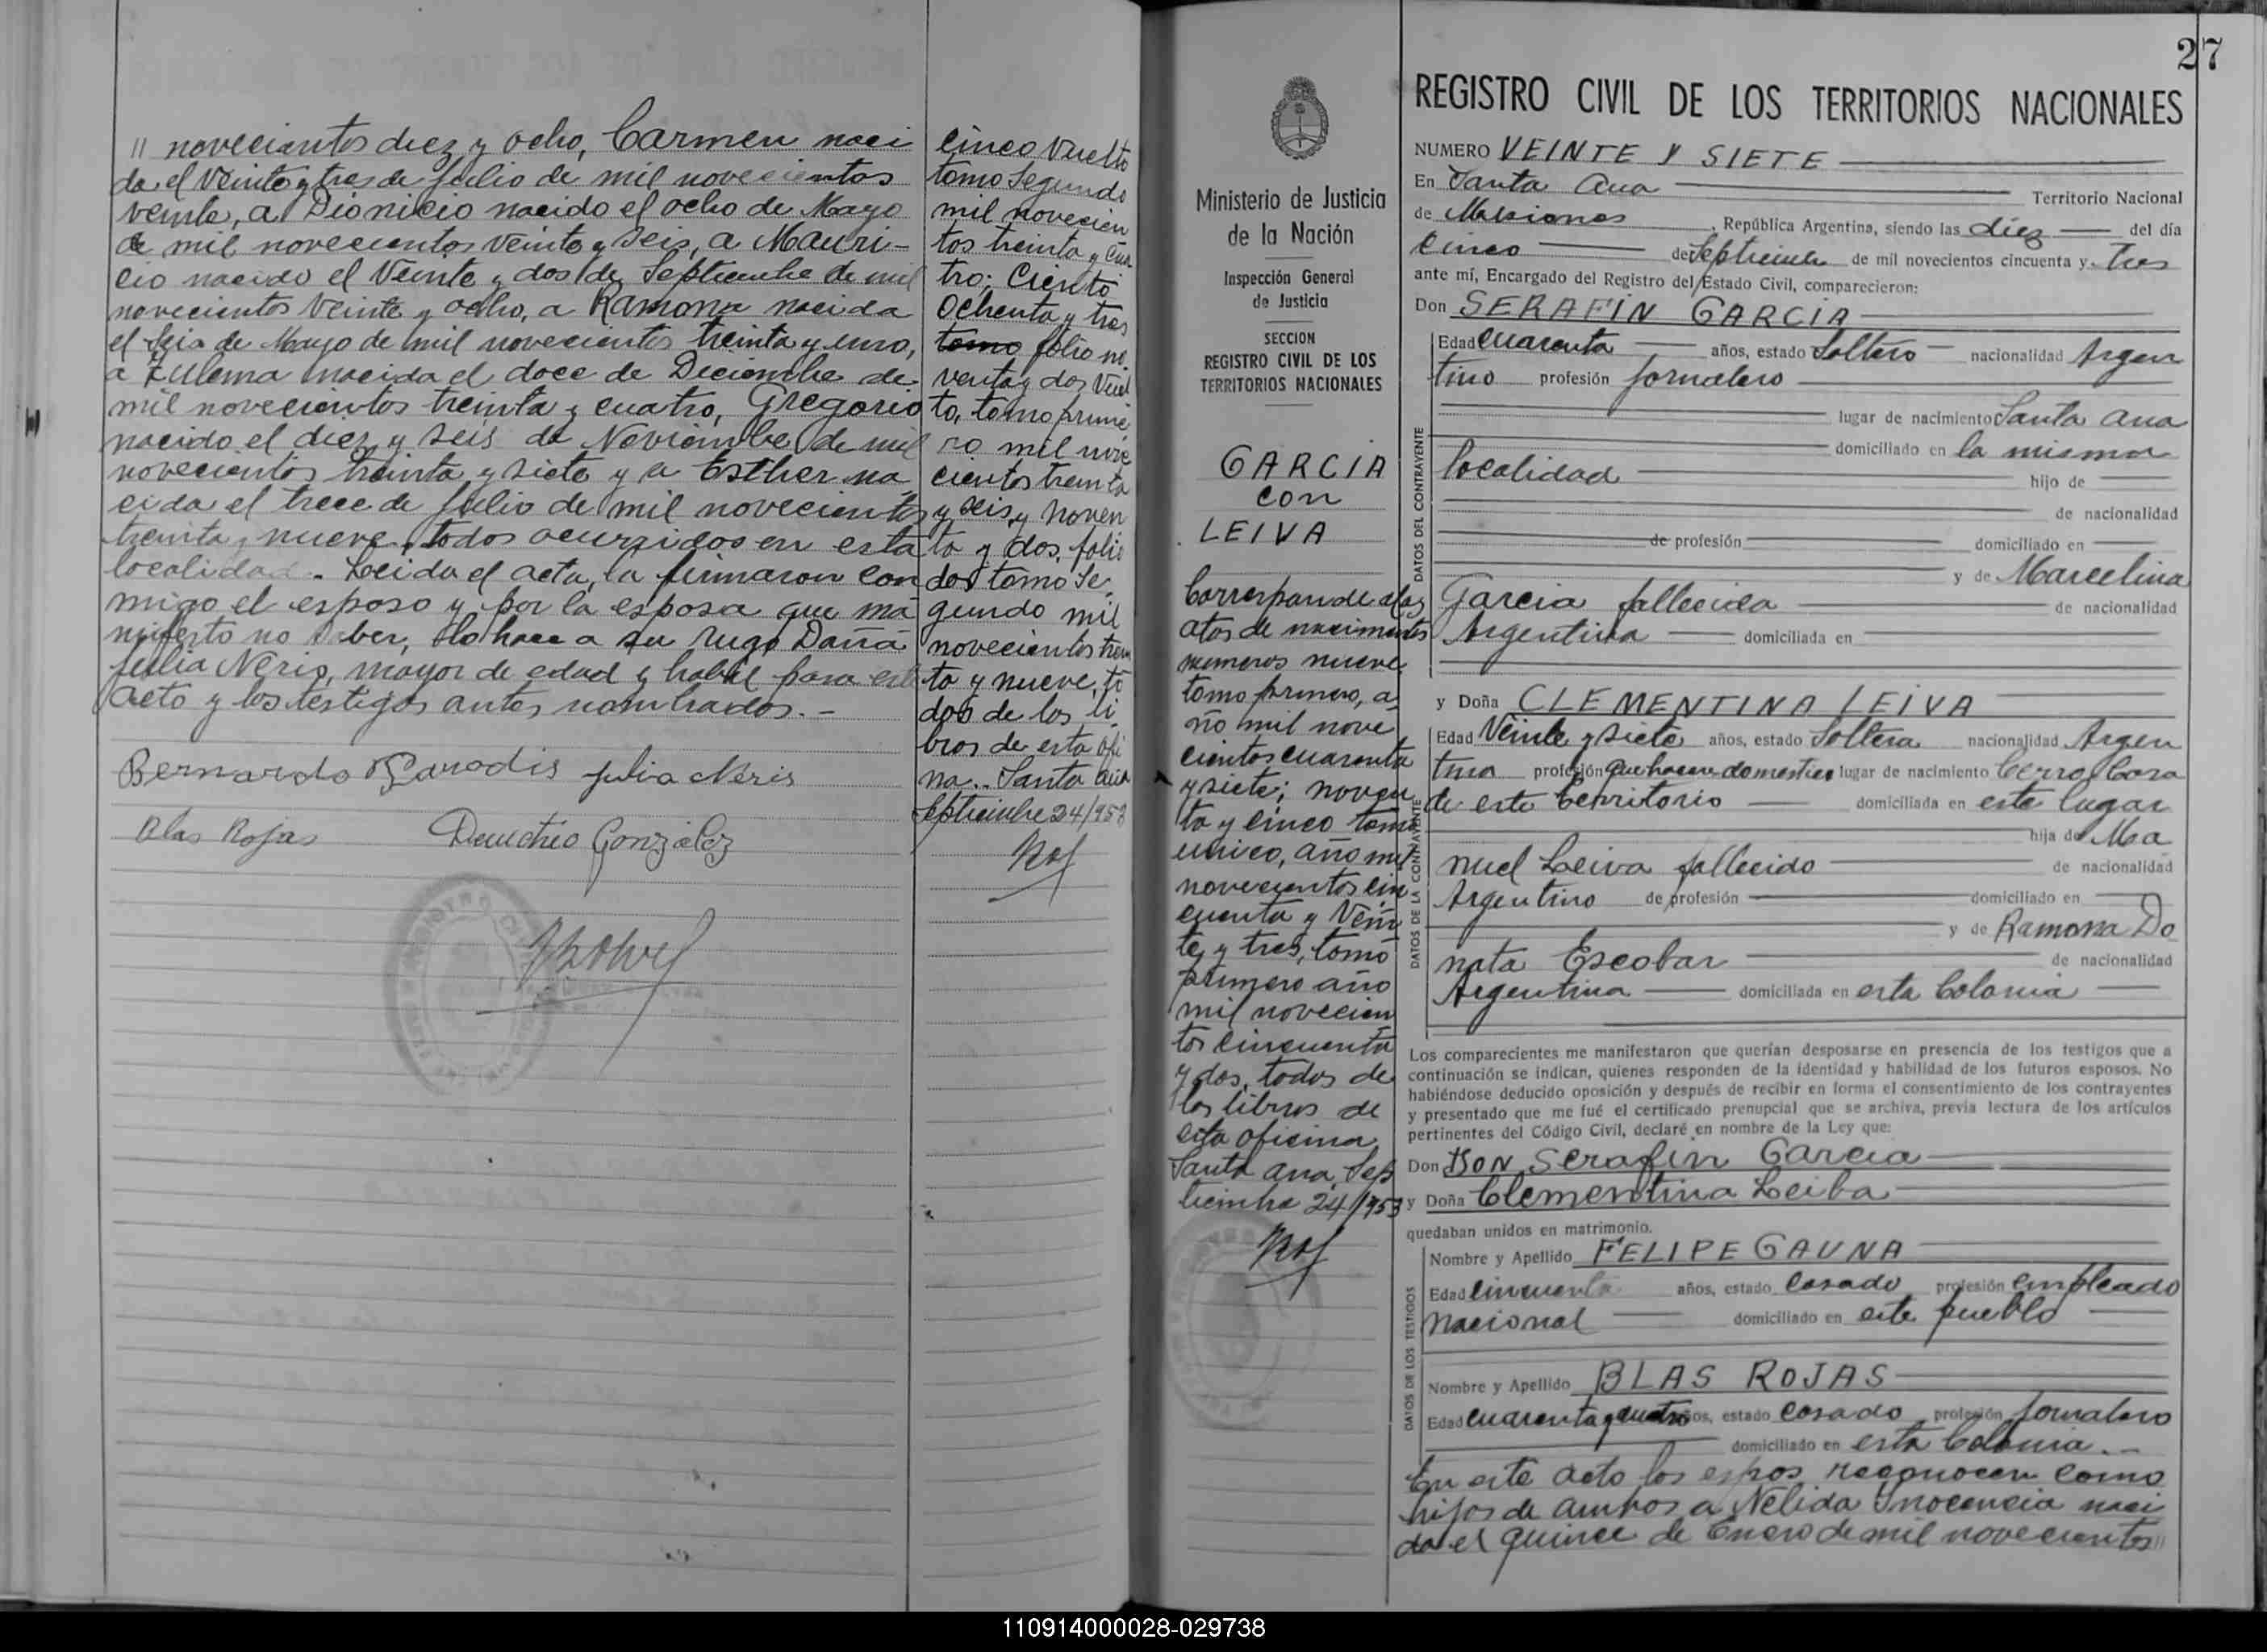 " novecientos diez y ocho, Carmen naci
da el veinte y tres de Julio de mil novecientos
veinte, a Dionicio nacido el ocho de Mayo
de mil novecientos veinte y seis, a Mauri-
cio nacido el veinte y dos de Septiembre de mil
novecientos veinte y ocho, a Ramona nacida
el seis de Mayo de mil novecientos treinta y uno,
a Zulema nacida el doce de Diciembre de
mil novecientos treinta y cuatro, Gregorio
nacido el diez y seis de Noviembre de mil
novecientos treinta y siete y a Esther na
cida el trece de Julio de mil novecientos
treinta y nueve, todos ocurridos en esta
localidad.- Leida el acta, la firmaron con
migo el esposo y por la esposa que ma
nifesto no saber, lo hace a su rugo Dañá
Julia Neris, mayor de edad y habil para este
acto y los testigos antes nombrados.-
Bernardo Parodis Julia Neris
Blas Rojas Demetrio González
cinco vuelto
tomo segundo
mil novecien
tos treinta y cua
tro; ciento
ochenta y tres
tomo folio no
venta y dos vuel
to, tomo prime
ro mil nove
cientos treinta
y seis y noven
ta y dos, folio
dos tomo se
gundo mil
novecientos trein
ta y nueve, to
dos de los li
bros de esta ofi
na.- Santa Ana
Septiembre 24/953
27
Ministerio de Justicia
de la Nación
Inspección General
de Justicia
SECCION
REGISTRO CIVIL DE LOS
TERRITORIOS NACIONALES
GARCIA
con
LEIVA
Corresponde a las
atas de nacimientos
numeros nueve
tomo primero, a
ño mil nove
cientos cuarenta
y siete; noven
ta y cinco tomo
unico, año mil
novecientos cin
cuenta y vein
te y tres, tomo
primero año
mil novecien
tos cincuenta
y dos, todos de
los libros de
esta oficina
Santa Ana, Sep
tiembre 24/953
REGISTRO CIVIL DE LOS TERRITORIOS NACIONALES
NUMERO VEINTE Y SIETE
En Santa Ana Territorio Nacional
de Misiones, República Argentina, siendo las diez del día
cinco de Septiembre de mil novecientos cincuenta y tres
ante mí, Encargado del Registro del Estado Civil, comparecieron:
Don SERAFIN GARCIA
DATOS DEL CONTRAYENTE
Edad cuarenta años, estado Soltero nacionalidad Argen
tino profesión jornalero
lugar de nacimiento Santa Ana
domiciliado en la misma
localidad hijo de
de nacionalidad
de profesión domiciliado en
y de Marcelina
Garcia fallecida de nacionalidad
Argentina domiciliada en
y Doña CLEMENTINA LEIVA
DATOS DE LA CONTRAYENTE
Edad Veinte y siete años, estado Soltera nacionalidad Argen
tina profesión Quehacer domestico lugar de nacimiento Cerro Cora
de este territorio domiciliada en este lugar
hija de Ma
nuel Leiva fallecido de nacionalidad
Argentino de profesión domiciliado en
y de Ramona Do
nata Escobar de nacionalidad
Argentina domiciliada en esta Colonia
Los comparecientes me manifestaron que querían desposarse en presencia de los testigos que a
continuación se indican, quienes responden de la identidad y habilidad de los futuros esposos. No
habiéndose deducido oposición y después de recibir en forma el consentimiento de los contrayentes
y presentado que me fué el certificado prenupcial que se archiva, previa lectura de los artículos
pertinentes del Código Civil, declaré en nombre de la Ley que:
Don DON Serafin Garcia
y Doña Clementina Leiba
quedaban unidos en matrimonio.
DATOS DE LOS TESTIGOS
Nombre y Apellido FELIPE GAUNA
Edad cincuenta años, estado casado profesión empleado
nacional domiciliado en este pueblo
Nombre y Apellido BLAS ROJAS
Edad cuarenta y cuatro años, estado casado profesión jornalero
domiciliado en esta Colonia.-
En este acto los espos reconocen como
hijos de ambos a Nelida Inocencia naci
da el quince de Enero de mil novecientos "
110914000028-029738